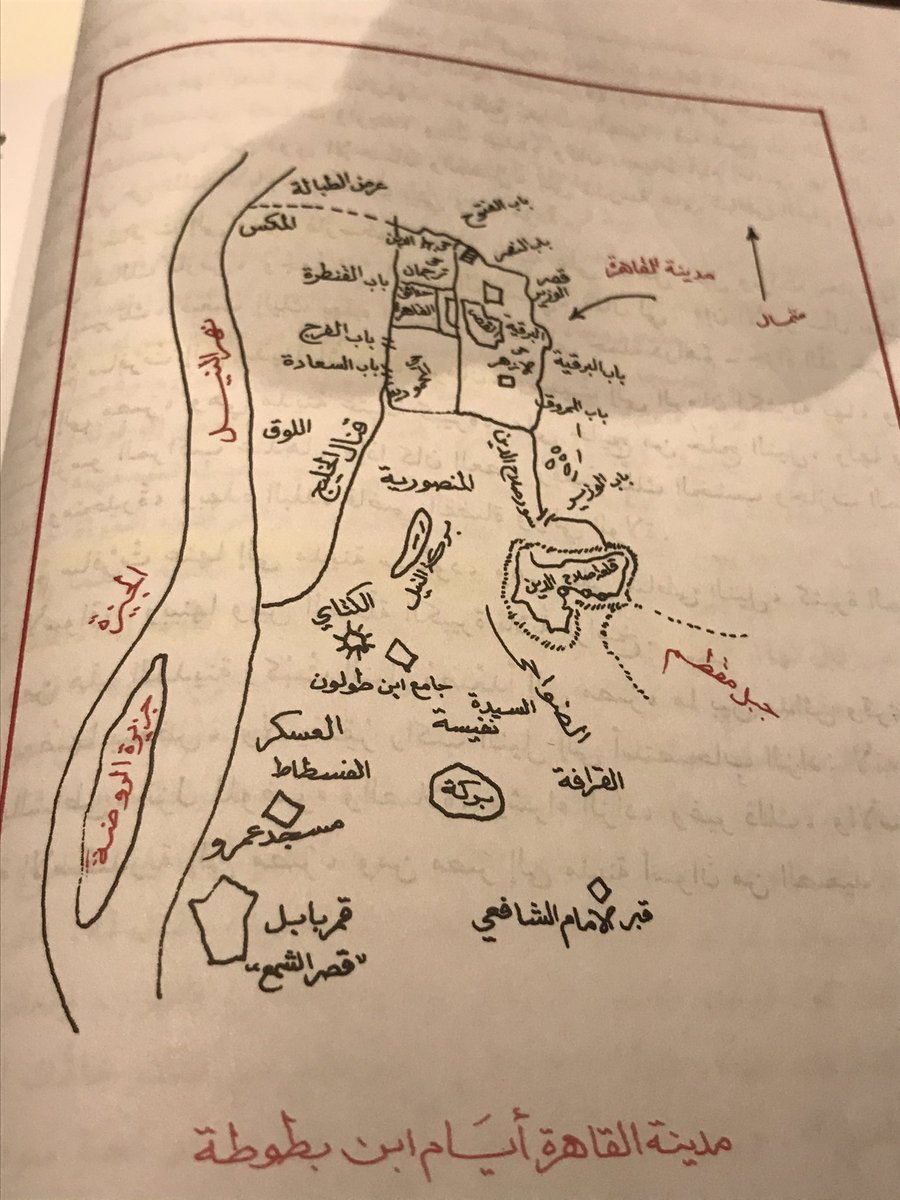 عرض الطبالة
باب الفتوح
المكس
باب النصر
قصر
الوزير
مدينة القاهرة
شمال
باب القنطرة
القاهرة
القصر
البرقية
باب الفرج
باب السعادة
الأزهر
باب البرقية
باب المحروق
نهر النيل
اللوق
قنال الخليج
المنصورية
سور صلاح الدين
باب الوزير
بركة الفيل
قلعة صلاح
الدين
الجيزة
الكتاي
جبل مقطم
جامع ابن طولون
السيدة
نفيسة
العسكر
الفسطاط
بركة
القرافة
جزيرة الروضة
مسجد عمرو
قصر بابل
"قصر الشمع"
قبر الامام الشافعي
مدينة القاهرة أيام ابن بطوطة